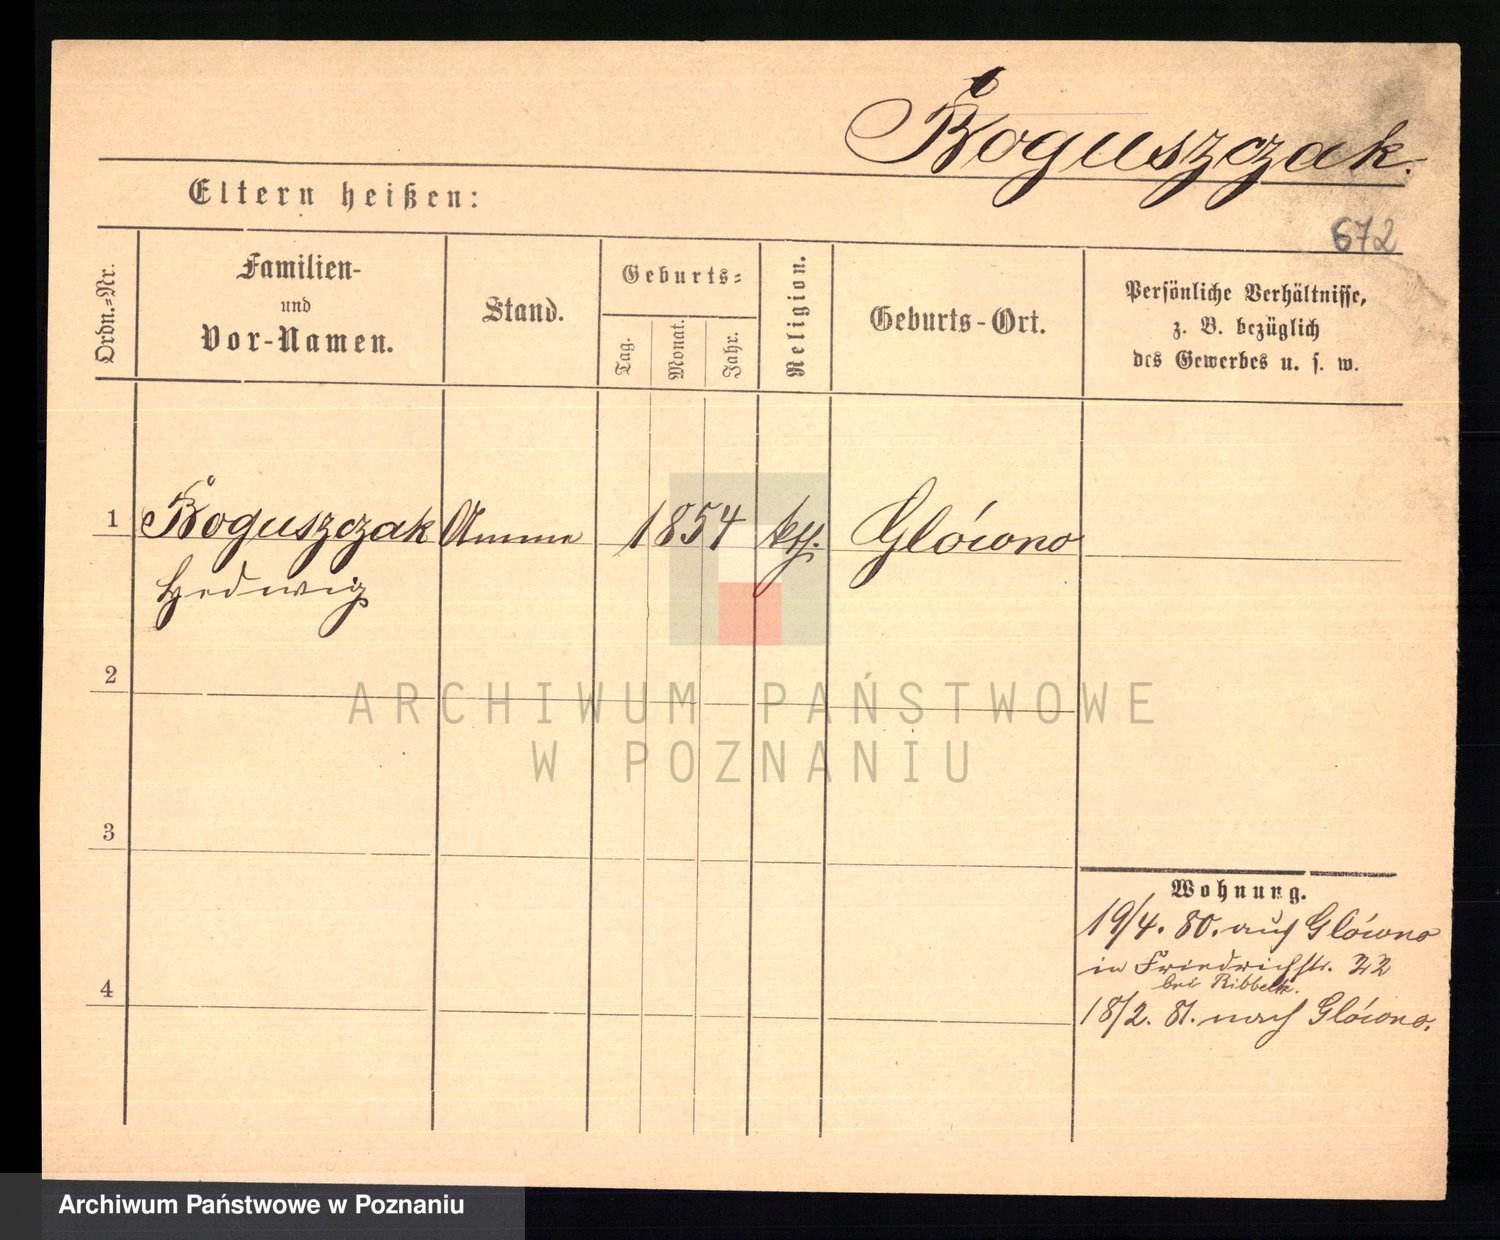 Boguszczak.
Eltern heißen:
672
Ordn.=Nr.
Familien-
und
Vor-Namen.
Stand.
Geburts=
Tag.
Monat.
Jahr.
Religion.
Geburts-Ort.
Persönliche Verhältnisse,
z. B. bezüglich
des Gewerbes u. s. w.
1 Boguszczak Amme 1854 kth. Glówno
Hedwig
2
ARCHIWUM PAŃSTWOWE
W POZNANIU
3
Wohnung.
19/4. 80. aus Glówno
in Friedrichstr. 22
bei Ribbeck.
4
18/2. 81. nach Glówno.
Archiwum Państwowe w Poznaniu